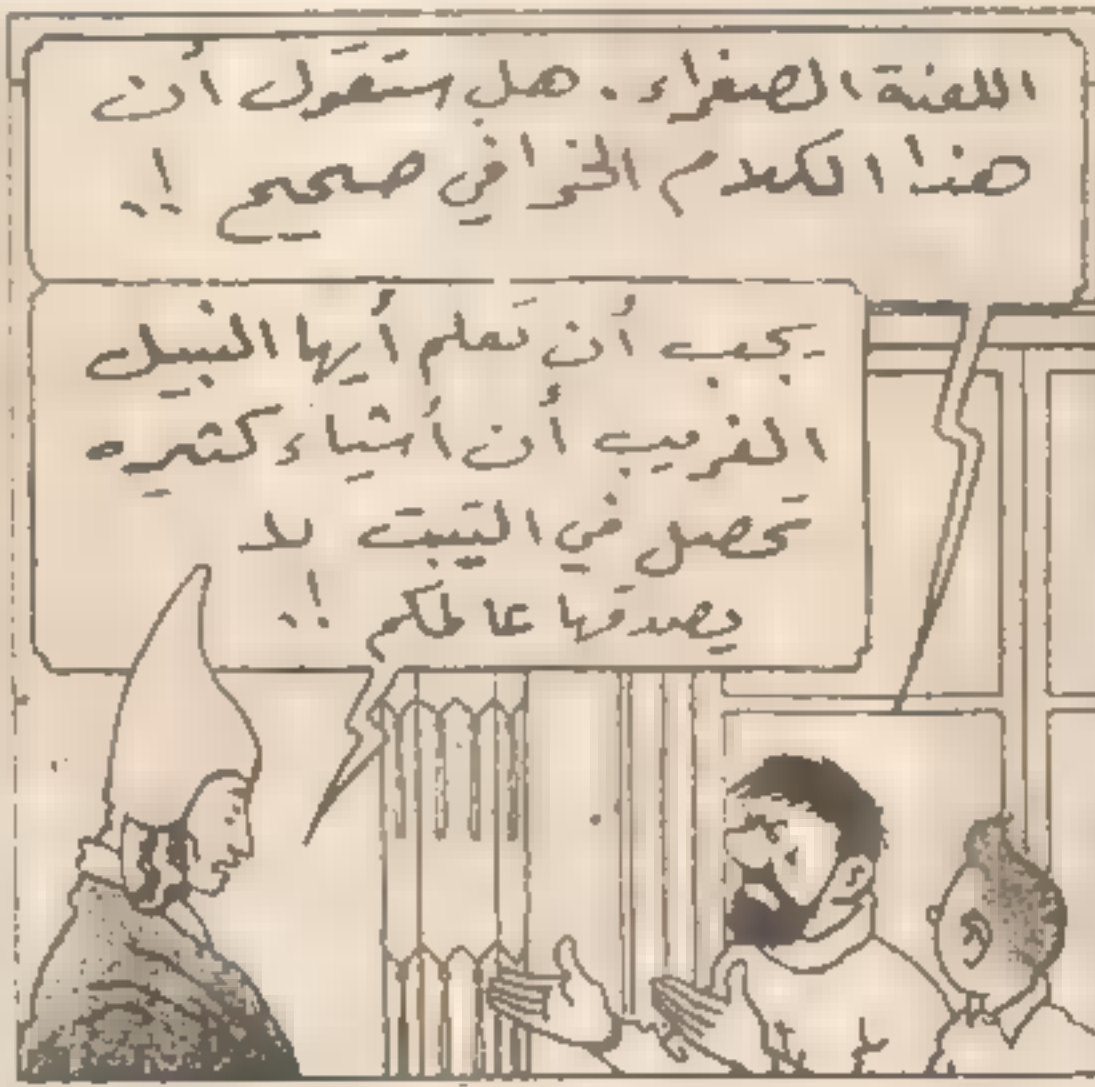 اللعنة الصفراء . هل ستقول أن
هذا الكلام الخرافي صحيح !.
يجب أن تعلم أيها النبيل
الغريب أن أشياء كثيره
تحصل في التيبت لا
يصدقها عالمكم !.